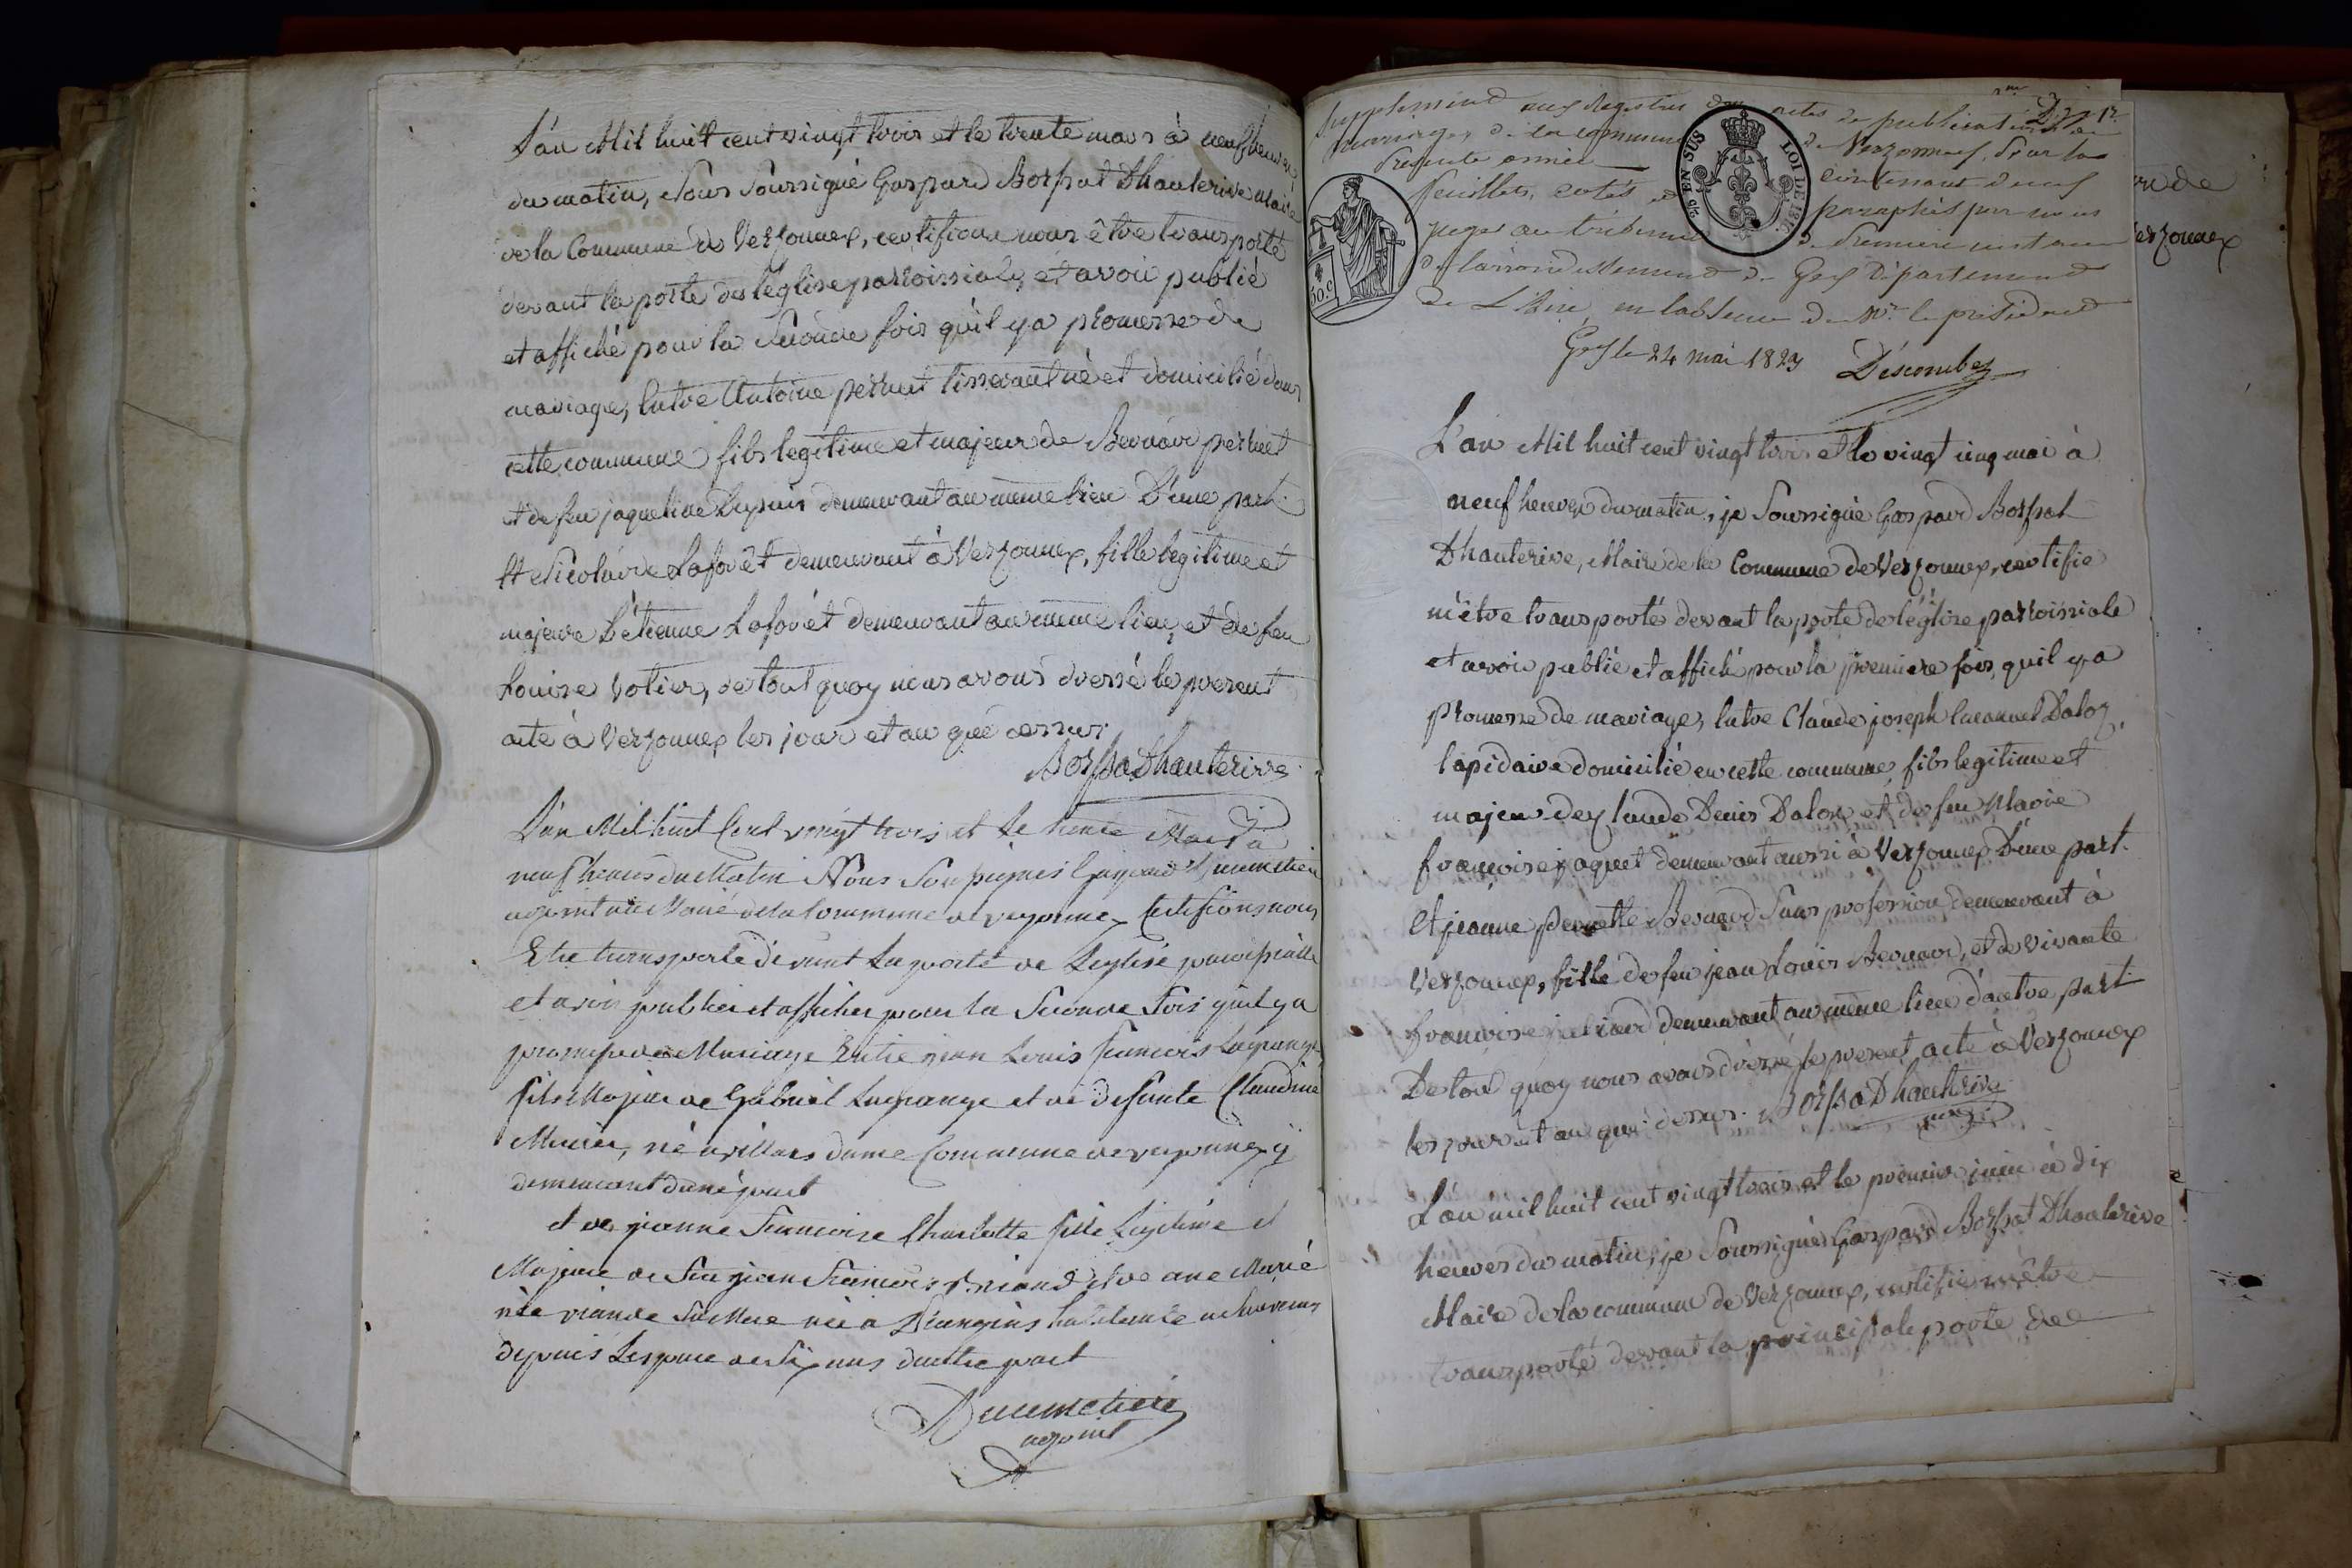 L'an Mil huit cent vingt trois et le trente mars à neuf heures
du matin, Nous soussigné Gaspard Borssat Dhauterive Maire
de la Commune de Versonnex, certifions nous être transporté
devant la porte de l'église parroissiale, et avoir publié
et affiché pour la seconde fois qu'il y a promesse de
mariage, Entre Antoine pernet tisserant né et domicilié dans
cette commune fils legitime et majeur de Bernard pernet
et de feu jaqueline Dupuis demeurant au même lieu D'une part
Et Nicolarde Laforêt demeurant à Versonnex, fille legitime et
majeure d'étienne Laforêt demeurant au même lieu, et de feu
Louise Votier, de tout quoy nous avons dressé le present
acte à Versonnex les jour et an que dessus.
Borssa Dhauterive
L'an Mil huit Cent vingt trois et le trente Mars à
neuf heures du Matin Nous Soussignés Gaspard
adjoint au Maire de la Commune de versonnex Certifions nous
Etre transporté devant la porte de L'eglise paroissialle
et avoir publier et afficher pour la Seconde Fois qu'il y a
promesse de Mariage Entre jean Louis francois Lagrange
fils Majeur de Gabriel Lagrange et de defunte Claudine
Mercier, né a villars dame Commune de versonnex y
demeurant d'une part
et de jeanne Francoise Charlotte fille Legitime et
Majeure de feu jean Francois Briand et de ane Marie
née viande sa Mere née a Divonne habitante a
depuis Lespace de Six mois d'autre part
adjoint
Supplement aux Registres des actes de publications de
mariages de la commune de Versonnex, pour la
presente année contenant deux
feuillets, cotés et paraphés par nous
juge au tribunal de premiere instance
de l'arrondissement de Gex Département
de L'Ain, en l'absence de Mr. le président
Gex le 24 mai 1823 Descombes
EN SUS LOI DE 1816
50.c
L'an Mil huit cent vingt trois et le vingt cinq mai à
neuf heures du matin, je soussigné Gaspard Borssat
Dhauterive, Maire de la Commune de Versonnex, certifie
m'être transporté devant la porte de l'église parroissiale
et avoir publié et affiché pour la premiere fois, qu'il y a
promesse de mariage, Entre Claude joseph Emanuel Daloz
lapidaire domicilié en cette commune, fils legitime et
majeur de Claude Denis Daloz et de feu Marie
francoise jaquet demeurant aussi à Versonnex D'une part.
Et jeanne pernette Bernard sans profession demeurant à
Versonnex, fille de feu jean Louis Bernard, et de vivante
francoise juliard demeurant au même lieu d'autre part
De tout quoy nous avons dressé le present acte à Versonnex
les jour et an que dessus. Borssa Dhauterive
maire
L'an mil huit cent vingt trois et le premier juin à dix
heures du matin, je soussigné Gaspard Borssat Dhauterive
Maire de la commune de Versonnex, certifie m'être
transporté devant la principale porte de